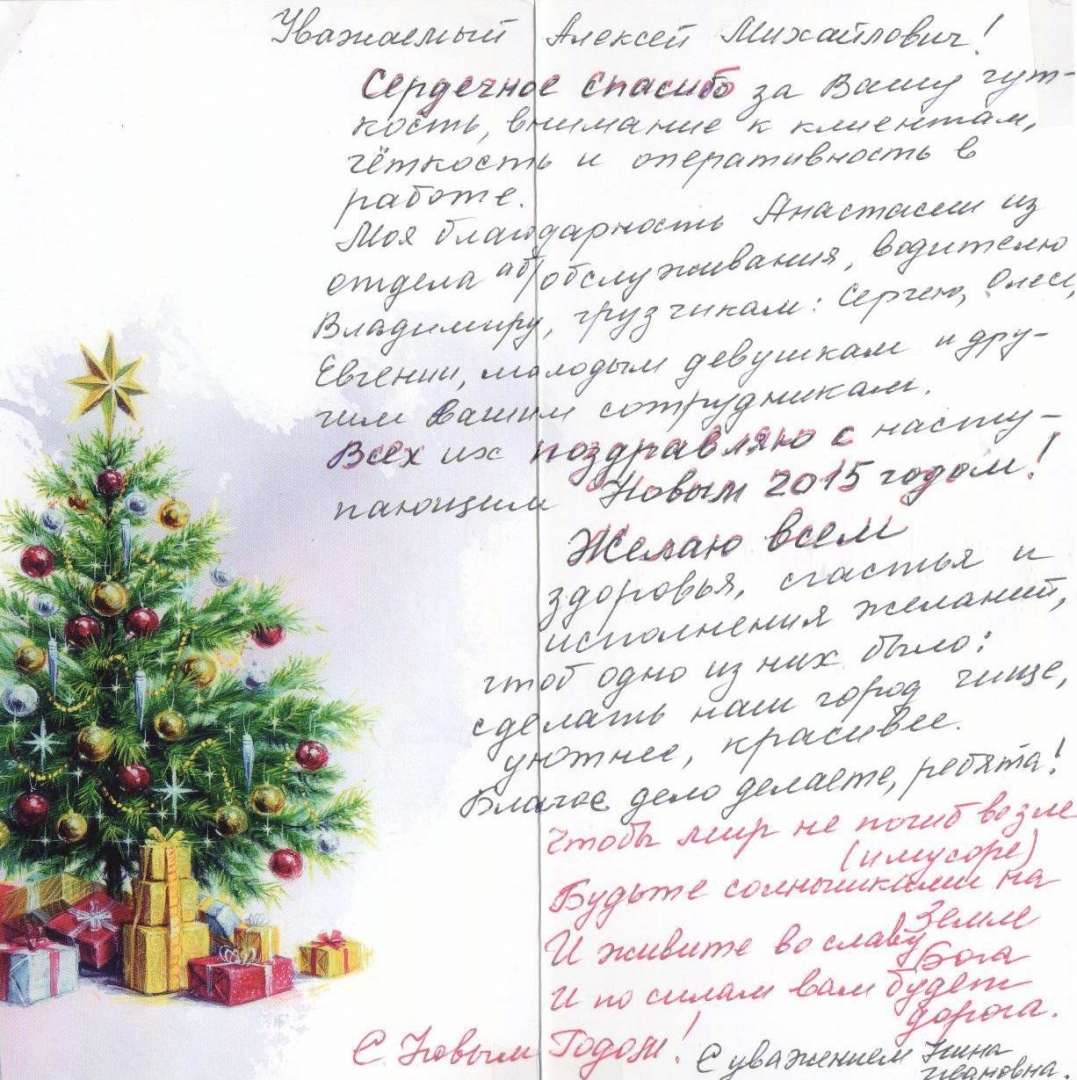 Уважаемый Алексей Михайлович!
Сердечное спасибо за Вашу чут-
кость, внимание к клиентам,
чёткость и оперативность в
работе.
Моя благодарность Анастасии из
отдела аб/обслуживания, водителю
Владимиру, грузчикам: Сергею, Олесе,
Евгении, молодым девушкам и дру-
гим Вашим сотрудникам.
Всех их поздравляю с насту-
пающим Новым 2015 годом!
Желаю всем
здоровья, счастья и
исполнения желаний,
чтоб одно из них было:
сделать наш город чище,
уютнее, красивее.
Благое дело делаете, ребята!
Чтобы мир не погиб во зле
(и мусоре)
Будьте солнышками на
Земле
И живите во славу Бога
И по силам вам будет
дорога.
С Новым Годом!
С уважением Нина
Ивановна.